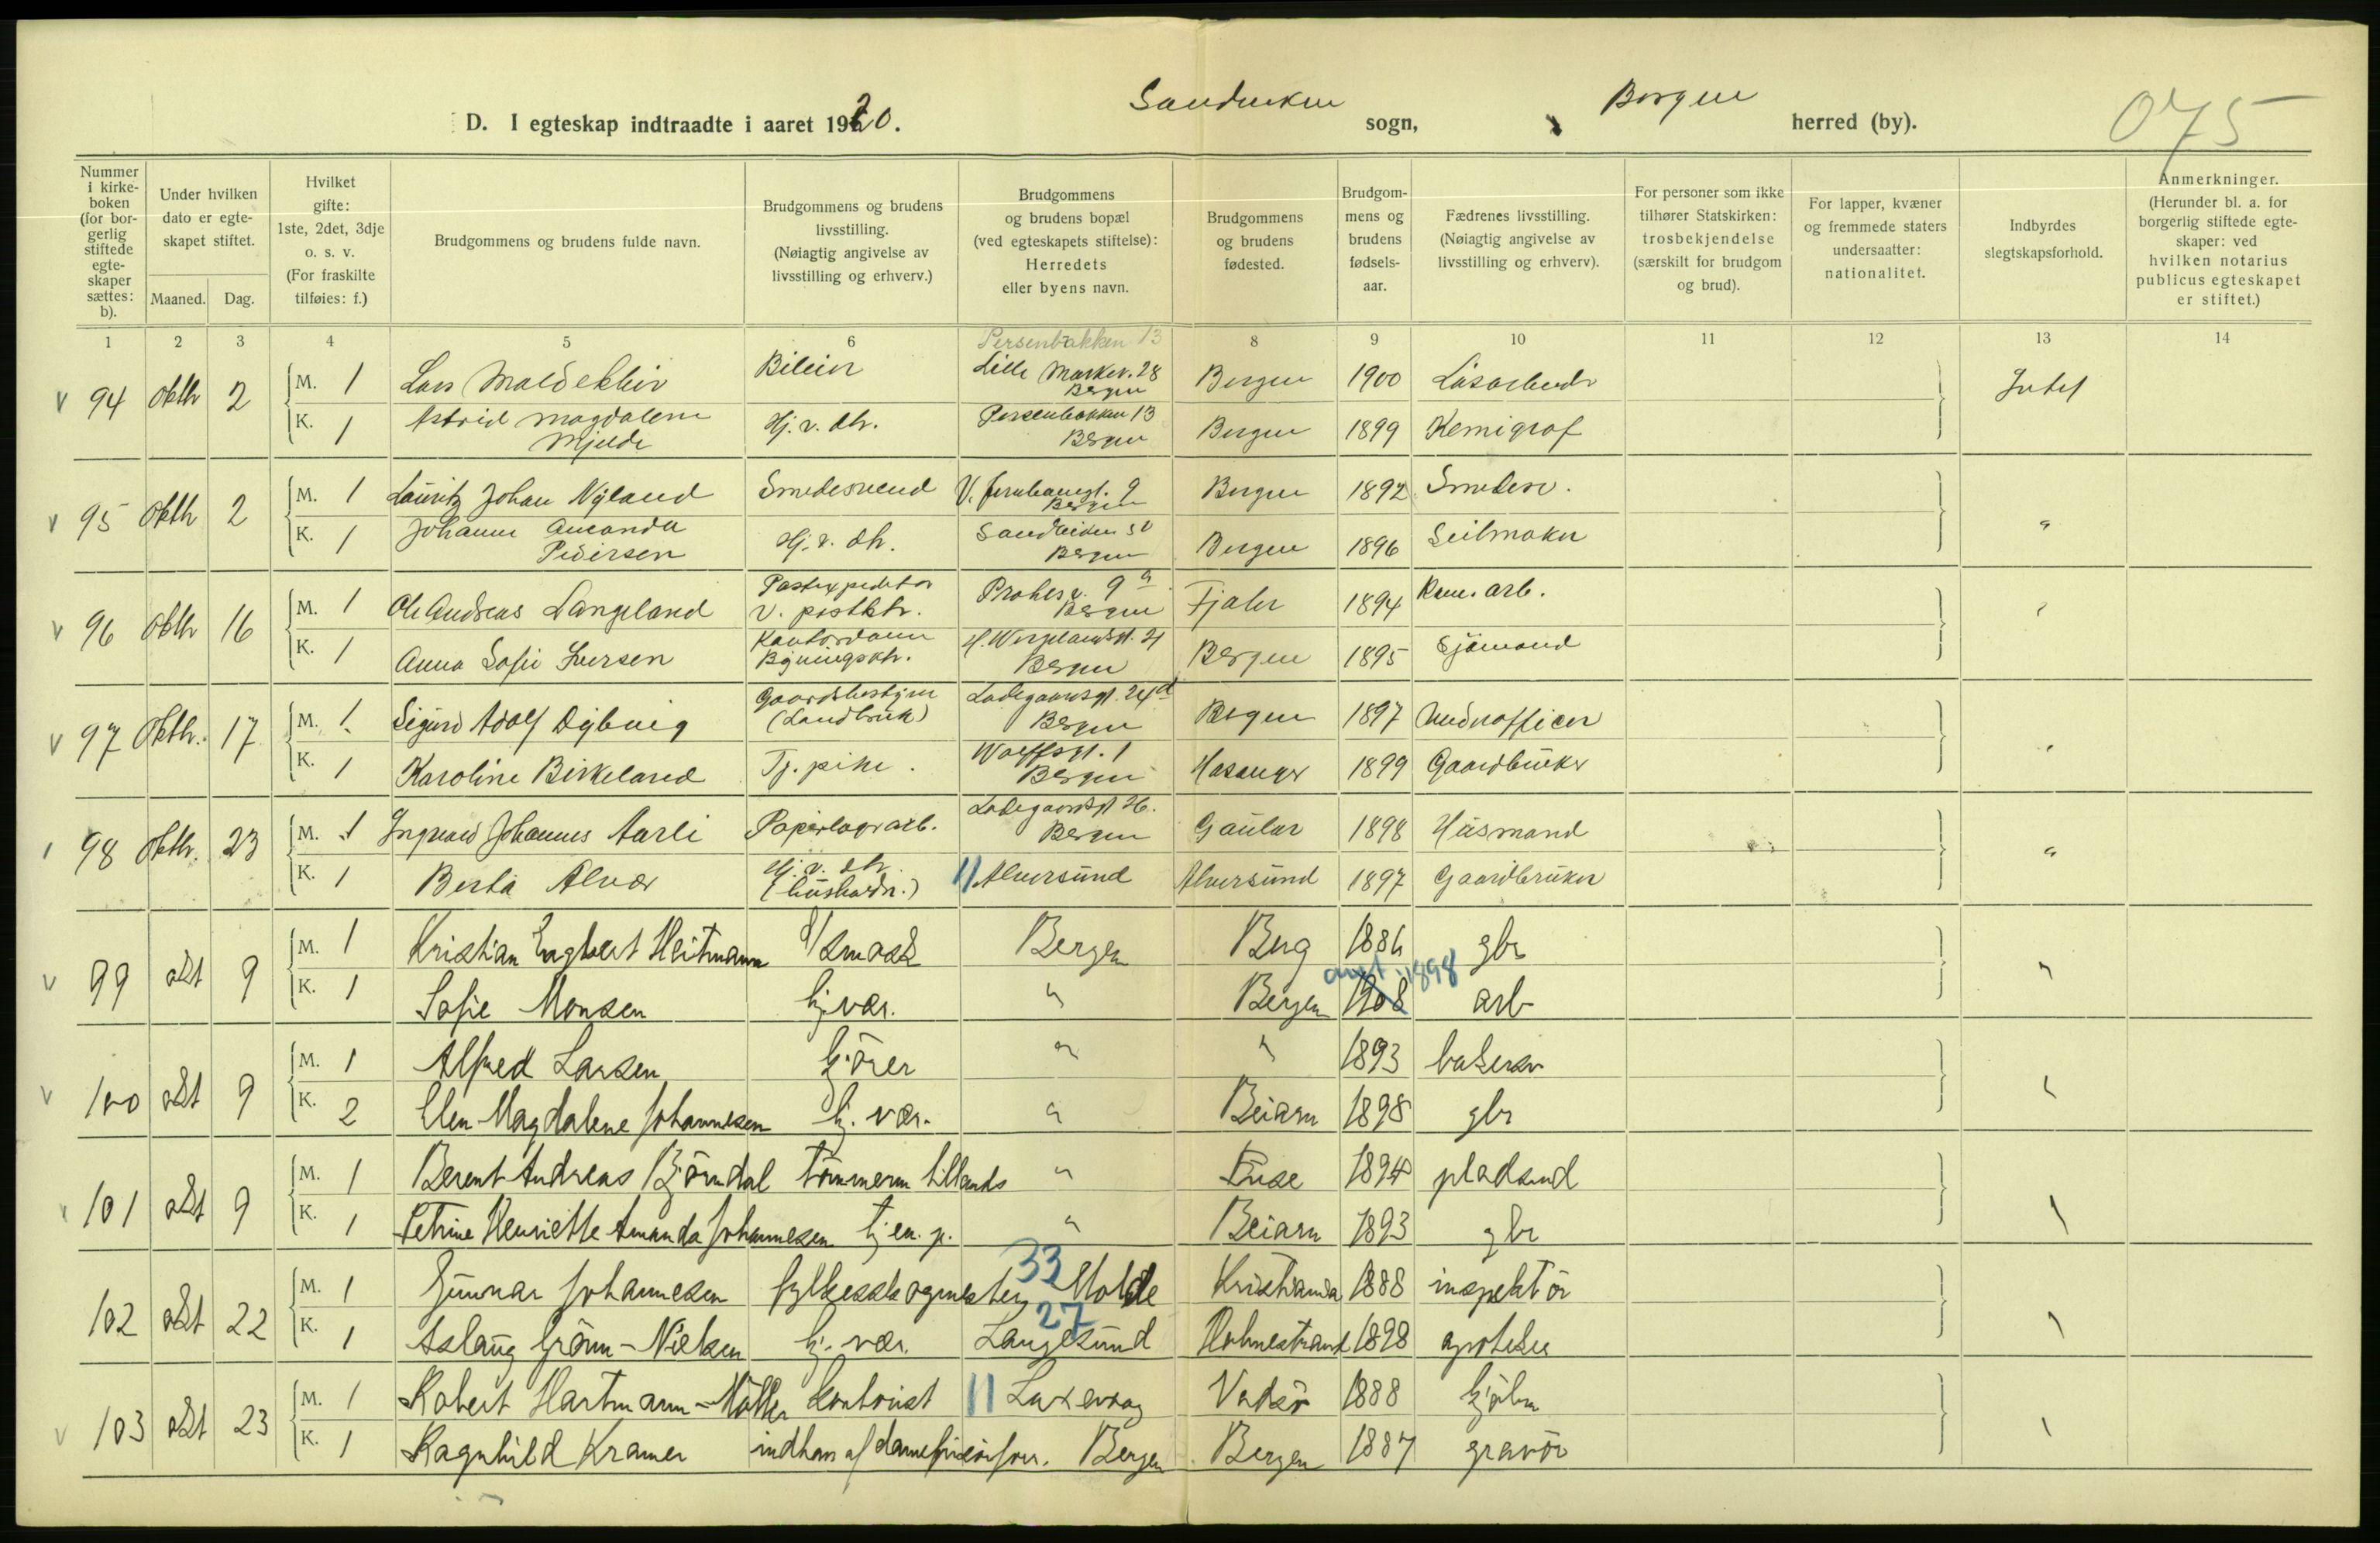 D. I egteskap indtraadte i aaret 1920. Sandviken sogn, Bergen herred (by). 075
Nummer i kirkeboken (for borgerlig stiftede egteskaper sættes: b).
Under hvilken dato er egteskapet stiftet.
Maaned. Dag.
Hvilket gifte: 1ste, 2det, 3dje o. s. v. (For fraskilte tilføies: f.)
Brudgommens og brudens fulde navn.
Brudgommens og brudens livsstilling. (Nøiagtig angivelse av livsstilling og erhverv.)
Brudgommens og brudens bopæl (ved egteskapets stiftelse): Herredets eller byens navn.
Brudgommens og brudens fødested.
Brudgommens og brudens fødselsaar.
Fædrenes livsstilling. (Nøiagtig angivelse av livsstilling og erhverv).
For personer som ikke tilhører Statskirken: trosbekjendelse (særskilt for brudgom og brud).
For lapper, kvæner og fremmede staters undersaatter: nationalitet.
Indbyrdes slegtskapsforhold.
Anmerkninger. (Herunder bl. a. for borgerlig stiftede egteskaper: ved hvilken notarius publicus egteskapet er stiftet.)
1 2 3 4 5 6 7 8 9 10 11 12 13 14
Persenbakken 13
v 94 Oktbr 2 M. 1 Lars Bileier Lille Markev. 28 Bergen Bergen 1900 Intet
K. 1 Astrid Magdalene Mjelde Hj. v. dtr. Persenbakken 13 Bergen Bergen 1899 Kemigraf
v 95 Oktb 2 M. 1 Lauritz Johan Nyland Smedesvend V. 9 Bergen Bergen 1892 Smedesv.
K. 1 Johanne Amanda Pedersen Hj. v. dtr. Bergen Bergen 1896 Seilmaker "
v 96 Oktbr 16 M. 1 Ole Andreas Langeland Postexpeditør v. postktr. 9a Bergen Fjaler 1894 arb. "
K. 1 Anna Sofie Iversen Kontordame H. Wergelandsgt. 21 Bergen Bergen 1895 Sjömand
v 97 Oktbr. 17 M. 1 Sigurd Adolf Dybvig Gaardsbestyrer (Landbruk) Ladegaardsgt. 24d Bergen Bergen 1897 Underofficer
K. 1 Karoline Birkeland Tj. pike. Wolffsgt. 1 Bergen Hosanger 1899 Gaardbruker "
98 Oktbr. 23 M. 1 Ingvald Johannes Aarli Papirlagerarb. Ladegaardsgt 26. Bergen Gaular 1898 Husmand
K. 1 Berta Alvær Hj. v. dtr. (husholdn.) 11 Alversund Alversund 1897 Gaardbruker "
v 99 okt 9 M. 1 Kristian Engbert Heitmann Bergen Berg 1886 gbr
K. 1 Sofie Monsen hj. vær. " Bergen 1908 1898 arb "
v 100 okt 9 M. 1 Alfred Larsen kjörer " " 1893 bakersv
K. 2 Elen Magdalene Johannesen hj. vær. " Beiarn 1898 gbr "
101 okt 9 M. 1 Berent Andreas Björndal tömmerm tillands " Fuse 1894 pladsmd
K. 1 Petrine Henriette Amanda Johannesen tjen. p. " Beiarn 1893 gbr "
102 okt 22 M. 1 Gunnar Johannesen fylkesskogmester 33 Molde Kristiania 1888 inspektör
K. 1 Aslaug Grönn-Nielsen hj. vær. 27 Langesund Holmestrand 1898 apoteker "
v 103 okt 23 M. 1 Robert Hartmann-Möller kontorist 11 Laxevaag Vadsö 1888 kjöbm
K. 1 Ragnhild Kramer Bergen Bergen 1887 gravör "